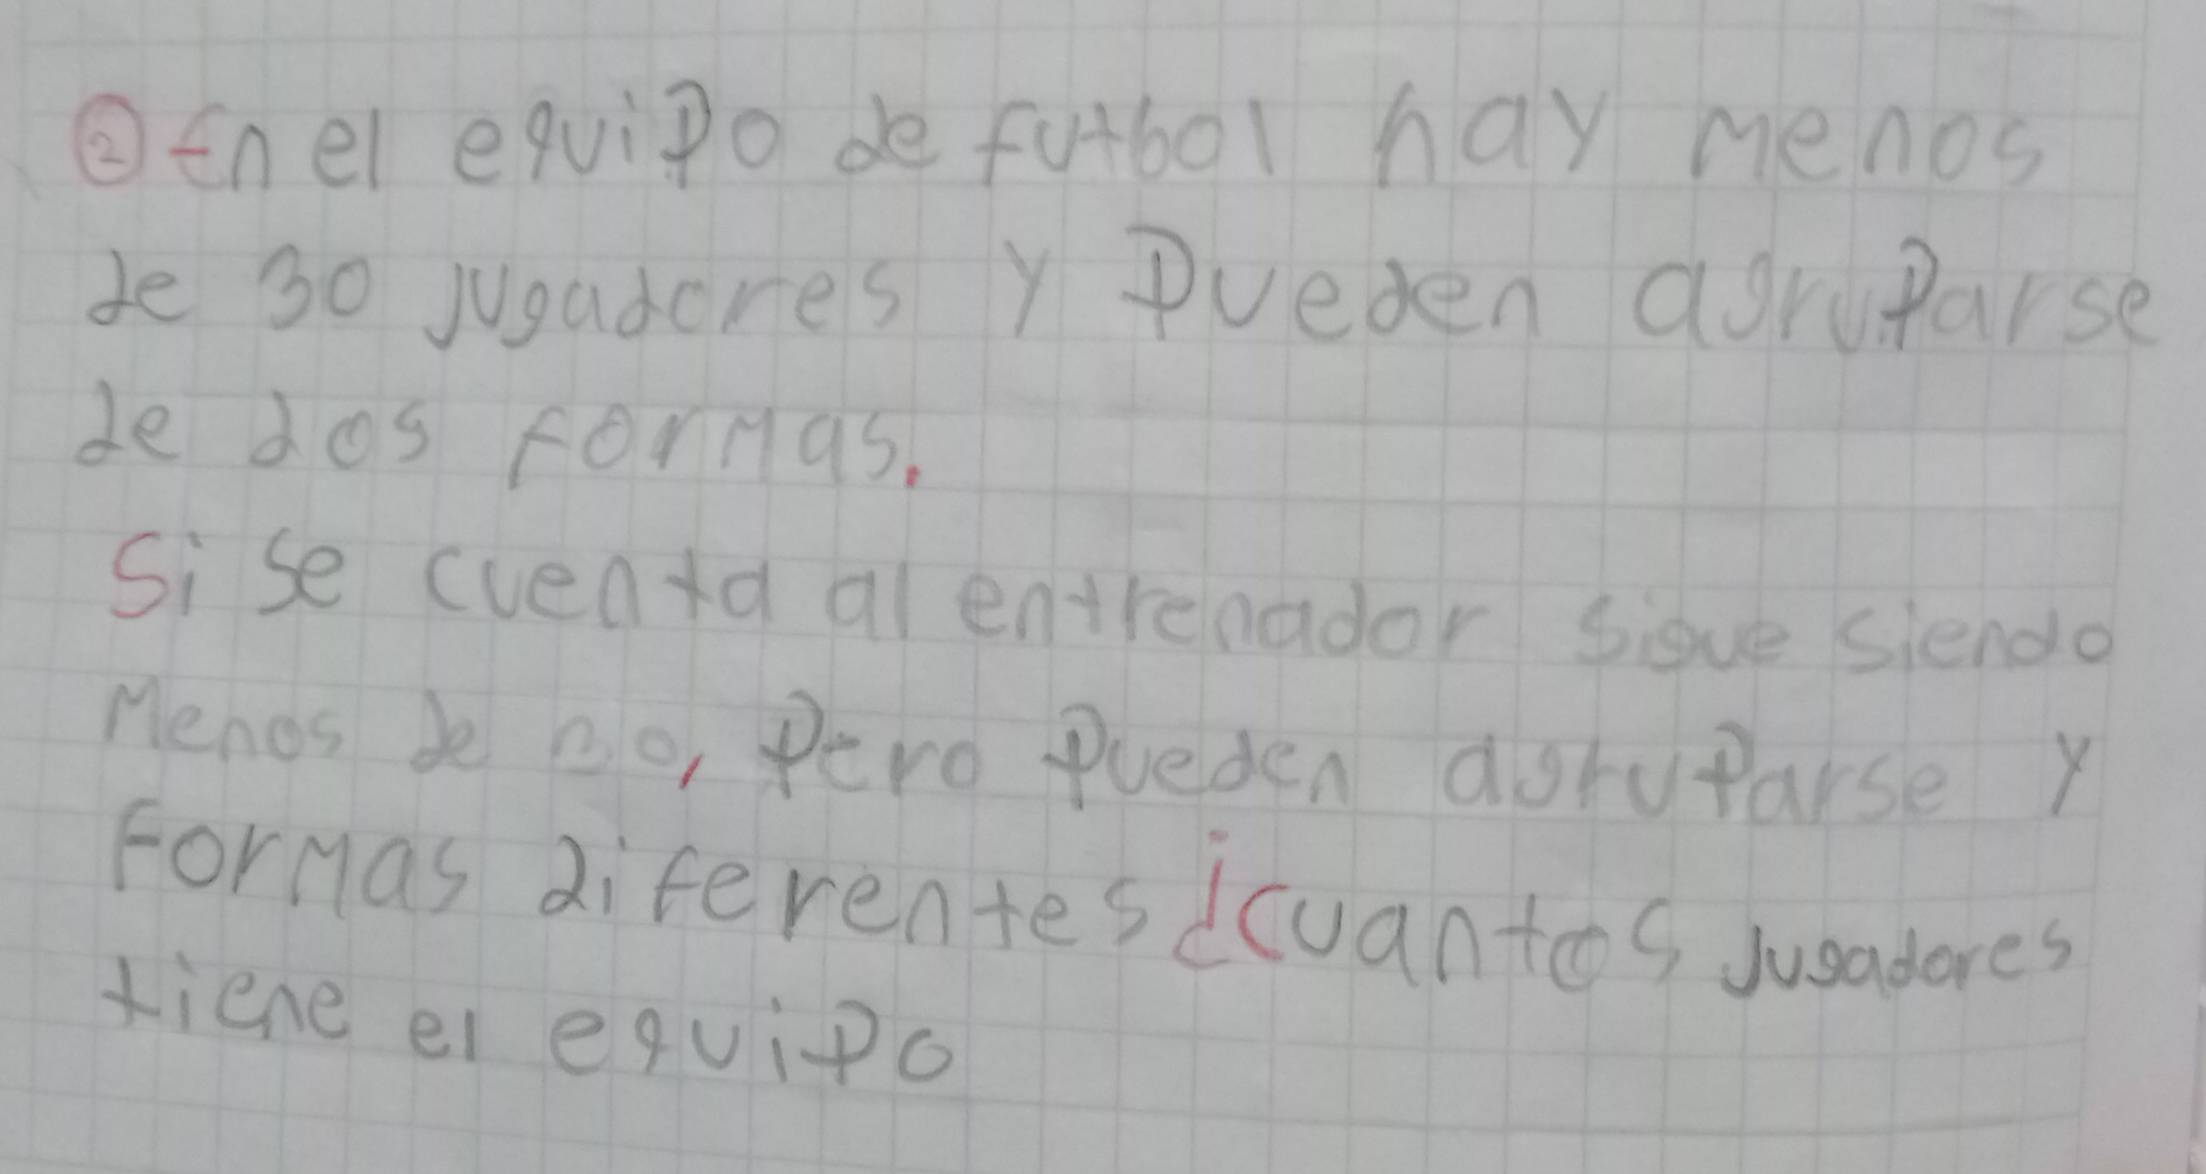 ② En el equipo de futbol hay menos
de 30 jugadores y pueden agruparse
de dos formas.
Si se cuenta al entrenador sigue siendo
menos de 30, pero pueden agruparse y
formas diferentes ¿cuantos jugadores
tiene el equipo